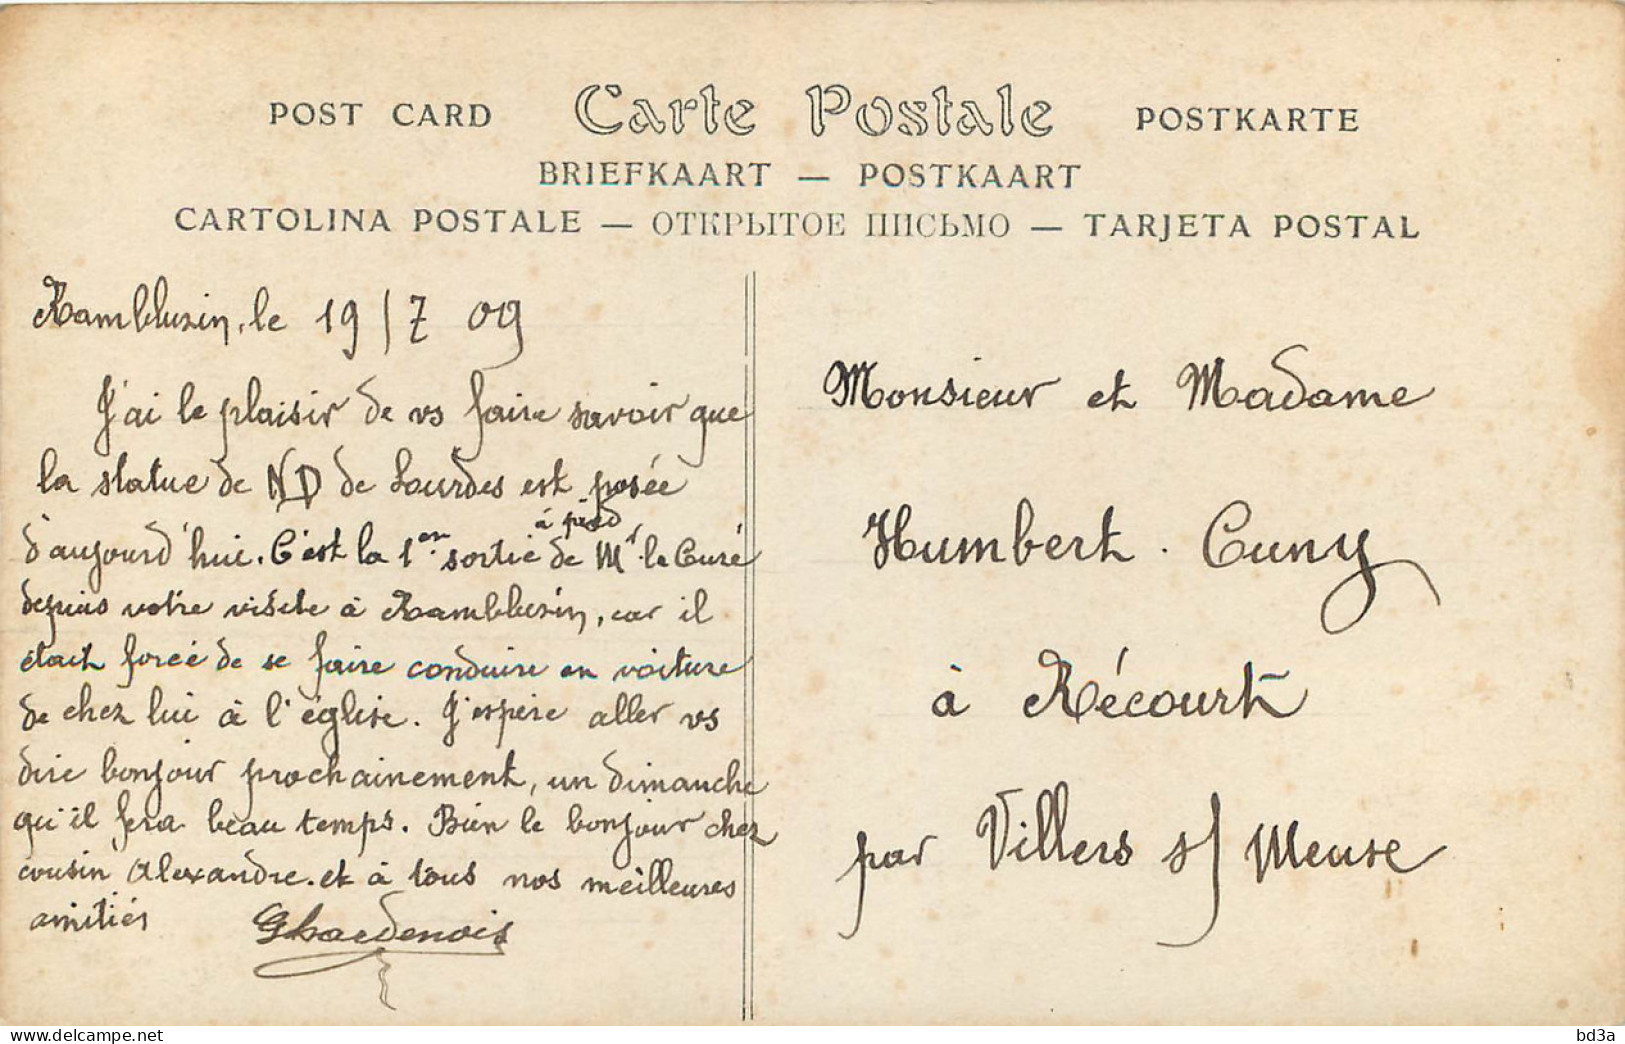 POST CARD Carte Postale POSTKARTE
BRIEFKAART — POSTKAART
CARTOLINA POSTALE — ОТКРЫТОЕ ПИСЬМО — TARJETA POSTAL
Rambluzin, le 19/7 09
J'ai le plaisir de vs faire savoir que
la statue de ND de Lourdes est posée
d'aujourd'hui. C'est la 1ère sortie à pied de Mr le Curé
depuis votre visite à Rambluzin, car il
était forcé de se faire conduire en voiture
de chez lui à l'église. J'espère aller vs
dire bonjour prochainement, un dimanche
qu'il fera beau temps. Bien le bonjour chez
cousin Alexandre. et à tous nos meilleures
amitiés
GChardenois
Monsieur et Madame
Humbert. Cuny
à Récourt
par Villers s/ Meuse
delcampe.net
bd3a